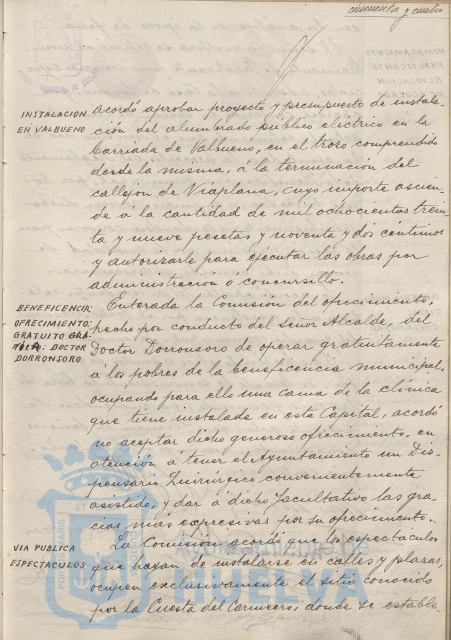 cincuenta y cuatro
INSTALACION
EN VALBUENO
acordó aprobar proyecto y presupuesto de instala-
ción del alumbrado público eléctrico en la
Barriada de Valbueno, en el trozo comprendido
desde la misma, á la terminación del
callejon de Viaplana, cuyo importe ascien-
de á la cantidad de mil ochocientas trein-
ta y nueve pesetas y noventa y dos céntimos
y autorizarle para ejecutar las obras por
administración ó concursillo.
BENEFICENCIA:
OFRECIMIENTO
GRATUITO
DOCTOR
DORRONSORO
Enterada la Comisión del ofrecimiento,
hecho por conducto del Señor Alcalde, del
Doctor Dorronsoro de operar gratuitamente
á los pobres de la beneficencia municipal,
ocupando para ello una cama de la clínica
que tiene instalada en esta Capital, acordó
no aceptar dicho generoso ofrecimiento, en
atención á tener el Ayuntamiento un Dis-
pensario Quirurgico convenientemente
asistido, y dar á dicho facultativo las gra-
cias mas expresivas por su ofrecimiento.
VIA PUBLICA
ESPECTACULOS
La Comisión acordó que los espectaculos
que hayan de instalarse en calles y plazas,
ocupen exclusivamente el sitio conocido
por la Cuesta del Carnicero, donde se estable
HUELVA